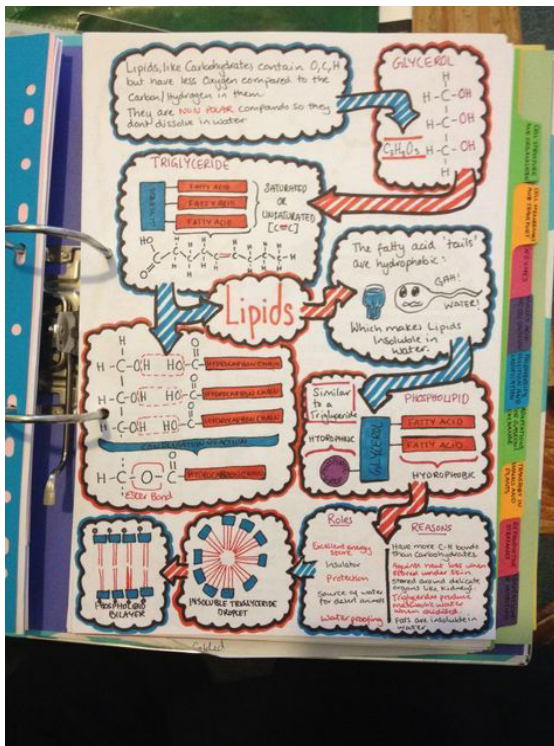 Lipids, like Carbohydrates contain O, C, H
but have less Oxygen compared to the
Carbon/Hydrogen in them
They are NON POLAR compounds so they
dont dissolve in water
GLYCEROL
H
H-C-OH
H-C-OH
H-C-OH
H
C3H8O3
TRIGLYCERIDE
GLYCEROL
FATTY ACID
FATTY ACID
FATTY ACID
SATURATED
OR
UNSATURATED
[C=C]
HO
O
The fatty acid 'tails'
are hydrophobic:
GAH!
WATER!
Which makes Lipids
Insoluble in
Water.
Lipids
H
H-C-O(H HO)-C-HYDROCARBON CHAIN
H-C-O(H HO)-C-HYDROCARBON CHAIN
H-C-O(H HO)-C-HYDROCARBON CHAIN
CONDENSATION REACTION
H-C-O-C-HYDROCARBON CHAIN
Ester Bond
PHOSPHOLIPID
Similar
to a
Triglyceride
HYDROPHILIC
GLYCEROL
FATTY ACID
FATTY ACID
HYDROPHOBIC
Roles
Excellent energy
source
Insulator
Protection
Source of water
for desert animals
Waterproofing
REASONS
Have more C-H bonds
than Carbohydrates.
Against heat loss when
stored under skin
Stored around delicate
organs like Kidney.
Triglycerides produce
metabolic water
when oxidised
Fats are insoluble in
water
INSOLUBLE TRIGLYCERIDE
DROPLET
PHOSPHOLIPID
BILAYER
CELL STRUCTURE
CELL MEMBRANE
AND TRANSPORT
ENZYMES
TRANSPORT IN
ANIMALS AND
PLANTS